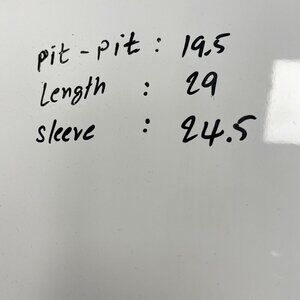 pit-pit : 19.5
Length : 29
sleeve : 24.5